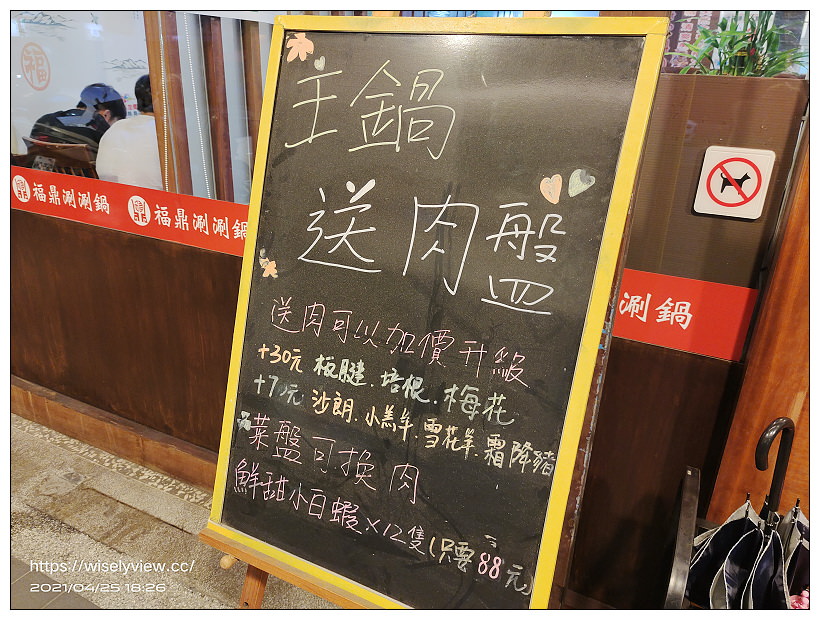 王鍋
送肉盤
送肉可以加價升級
+30元 板腱.培根.梅花
+70元 沙朗.小羔羊.雪花羊.霜降豬
菜盤可換肉
鮮甜小白蝦×12隻(只要88元)
福
福鼎涮涮鍋
福鼎涮涮鍋
涮鍋
https://wiselyview.cc/
2021/04/25 18:26